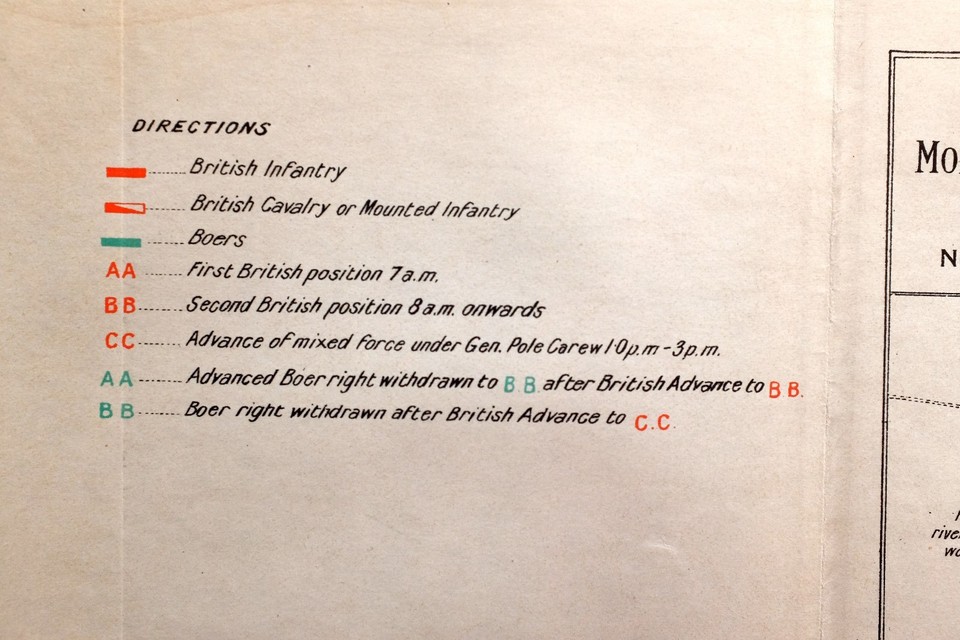 DIRECTIONS
British Infantry
British Cavalry or Mounted Infantry
Boers
A A First British position 7 a.m.
B B Second British position 8 a.m. onwards
C C Advance of mixed force under Gen. Pole Carew 1·0 p.m - 3 p.m.
A A Advanced Boer right withdrawn to B B. after British Advance to B B.
B B Boer right withdrawn after British Advance to C.C.